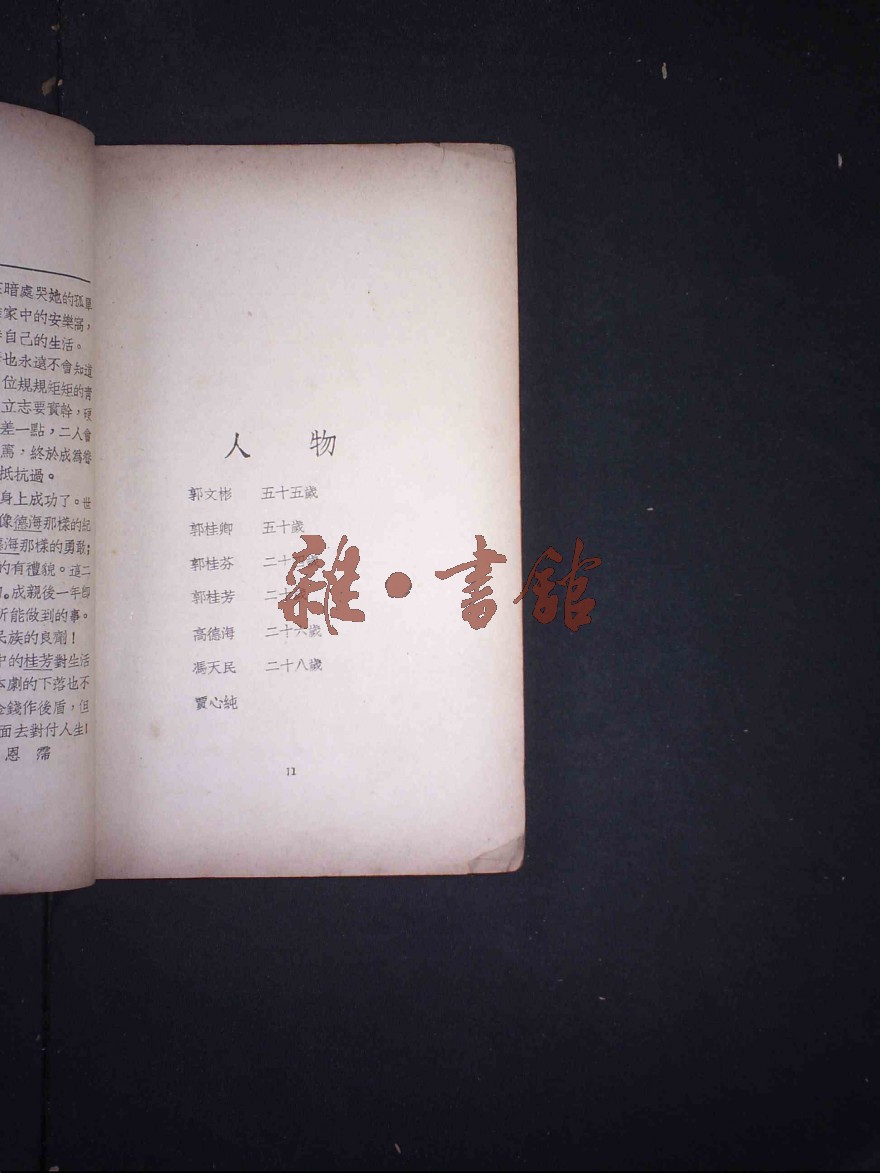 暗處哭她的孤單
家中的安樂窩,
自己的生活。
也永遠不會知道
位規規矩矩的青
立志要實幹,硬
差一點,二人會
罵,終於成為
抵抗過。
身上成功了。世
像德海那樣的紀
德海那樣的勇敢;
的有禮貌。這二
。成親後一年
所能做到的事。
民族的良劑!
中的桂芳對生活
本劇的下落也不
金錢作後盾,但
面去對付人生!
恩霈
人物
郭文彬 五十五歲
郭桂卿 五十歲
郭桂芬 二十 歲
郭桂芳 二十
高德海 二十六歲
馮天民 二十八歲
賈心純
11
雜·書館